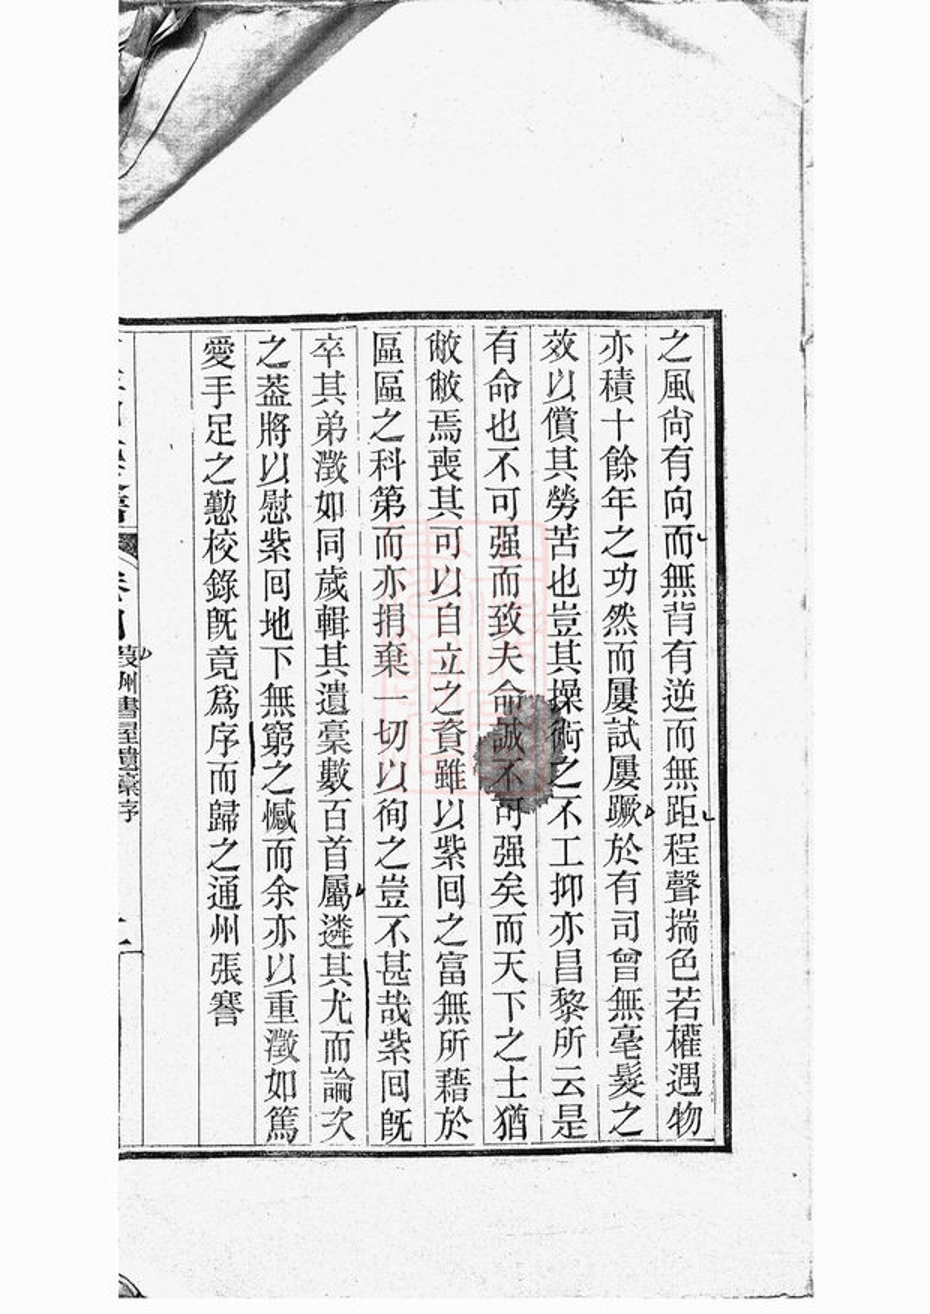 之風尙有向而無背有逆而無距程聲揣色若權遇物
亦積十餘年之功然而屢試屢蹶於有司曾無毫髮之
效以償其勞苦也豈其操術之不工抑亦昌黎所云是
有命也不可强而致夫命誠不可强矣而天下之士猶
敝敝焉喪其可以自立之資雖以紫回之富無所藉於
區區之科第而亦捐棄一切以徇之豈不甚哉紫回旣
卒其弟澂如同歲輯其遺稾數百首屬遴其尤而論次
之葢將以慰紫回地下無窮之憾而余亦以重澂如篤
愛手足之懃校錄旣竟爲序而歸之通州張謇
葭州書屋遺稾序